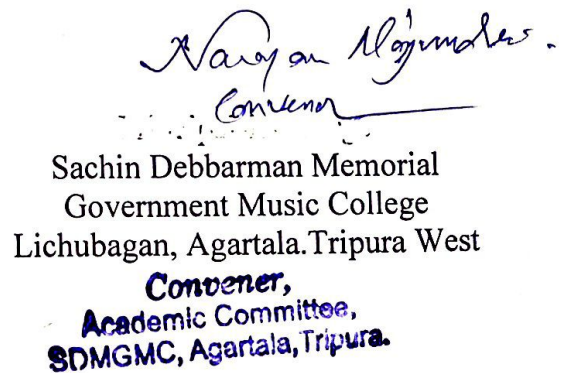 Narayan Majumder.
Convenor
Sachin Debbarman Memorial
Government Music College
Lichubagan, Agartala.Tripura West
Convener,
Academic Committee,
SDMGMC, Agartala,Tripura.